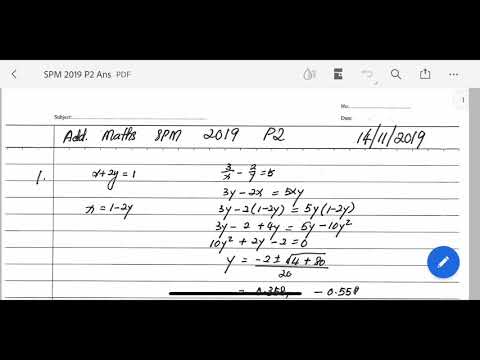 SPM 2019 P2 Ans PDF
1
Subject:
No:
Date:
Add. Maths SPM 2019 P2 14/11/2019
1. x+2y=1 3/x - 2/y = 5
3y-2x = 5xy
x=1-2y 3y-2(1-2y) = 5y(1-2y)
3y-2+4y = 5y-10y²
10y²+2y-2=0
y = (-2 ± √(4+80))/20
= 0.358, -0.558